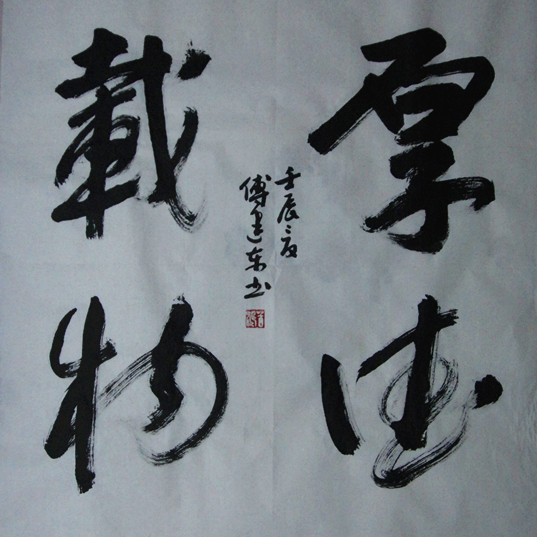 厚德
載物
壬辰之夏
傅建东书